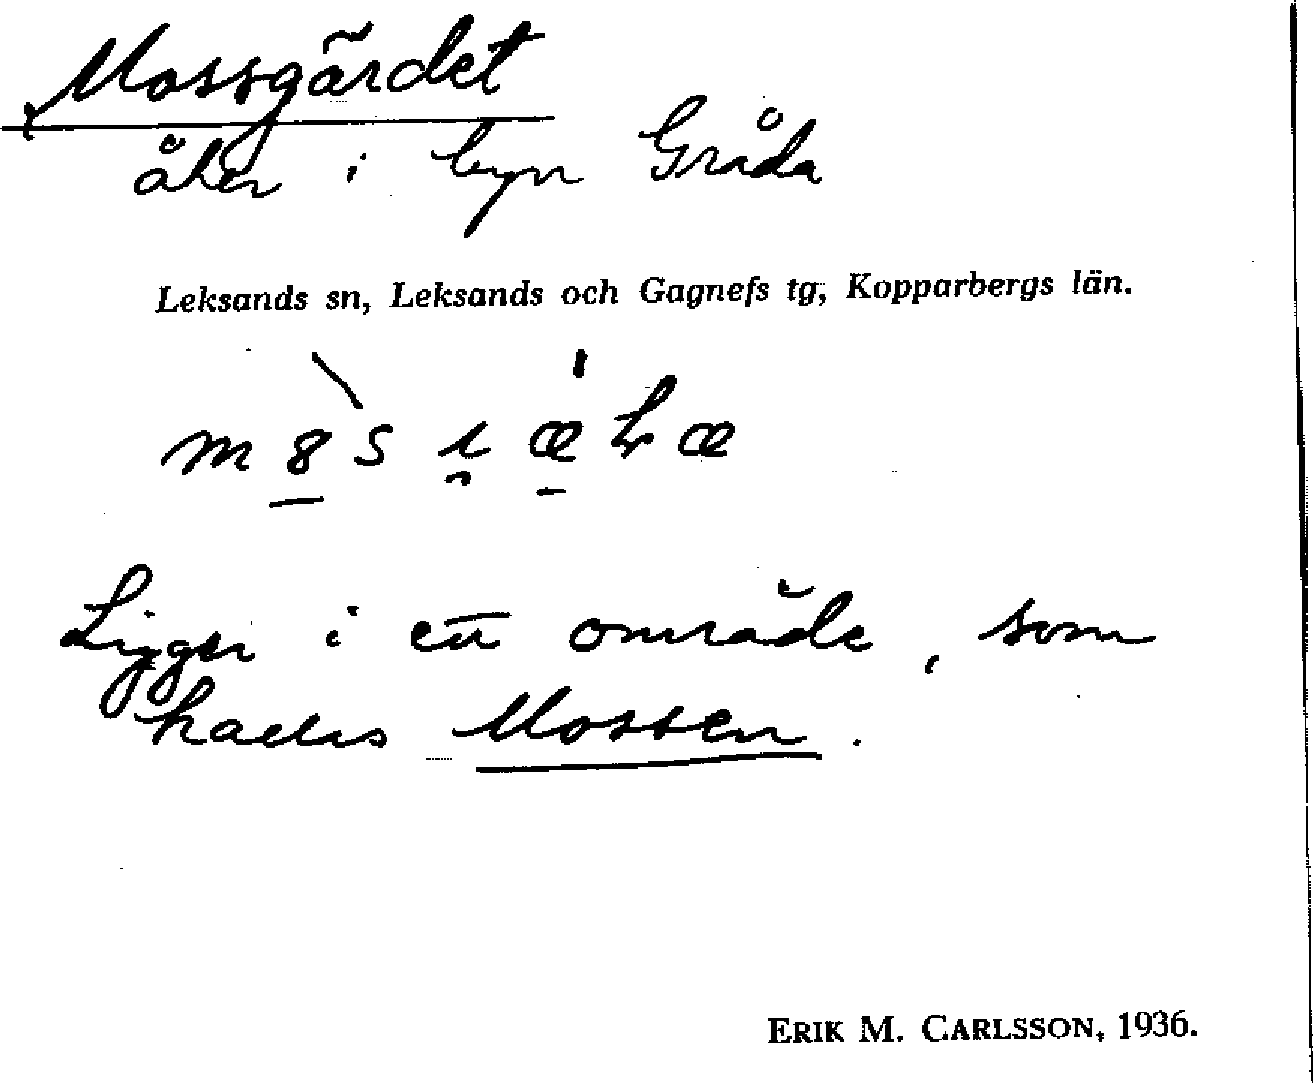 Mossgärdet
åker i byn Gråda
Leksands sn, Leksands och Gagnefs tg, Kopparbergs län.
Ligger i ett område, som
kallas Mossen.
ERIK M. CARLSSON, 1936.